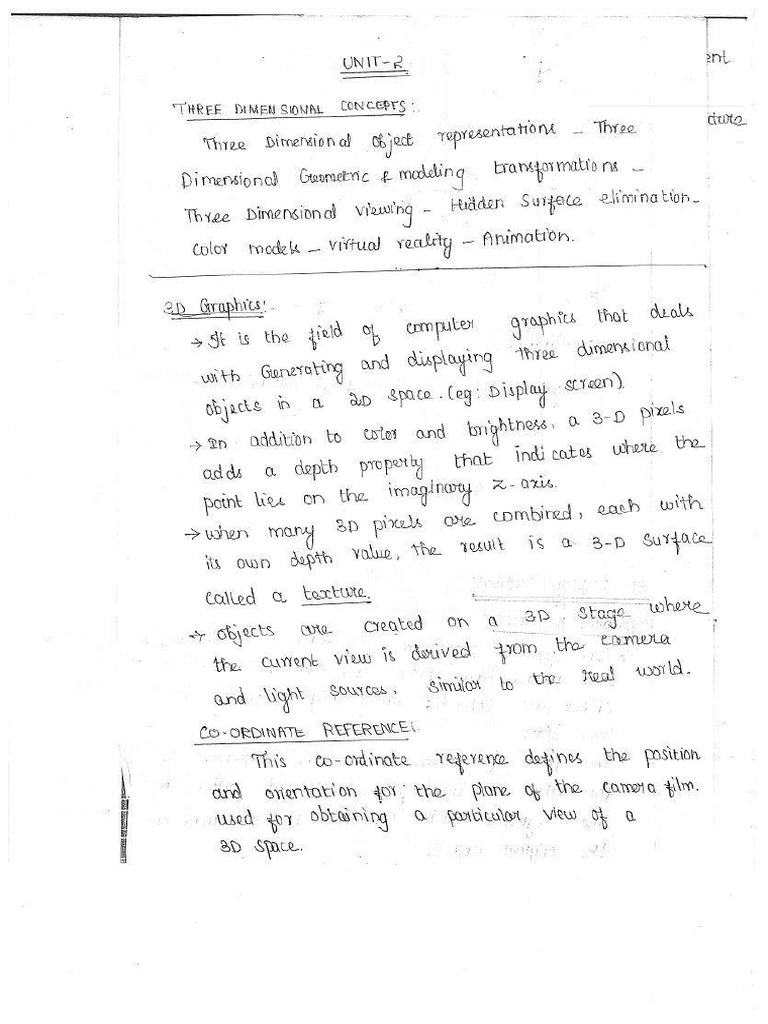 UNIT-2
ent
THREE DIMENSIONAL CONCEPTS:.
cture
Three Dimensional object representations - Three
Dimensional Geometric & modeling transformations -
Three Dimensional viewing - Hidden Surface elimination -
color models - virtual reality - Animation.
3D Graphics:.
→ It is the field of computer graphics that deals
with Generating and displaying three dimensional
objects in a 2D space. (eg: Display screen)
→ In addition to color and brightness, a 3-D pixels
adds a depth property that indicates where the
point lies on the imaginary z-axis.
→ when many 3D pixels are combined, each with
its own depth value, the result is a 3-D surface
called a texture.
→ objects are created on a 3D stage where
the current view is derived from the camera
and light sources, similar to the real world.
CO-ORDINATE REFERENCE:.
This co-ordinate reference defines the position
and orientation for the plane of the camera film.
used for obtaining a particular view of a
3D space.